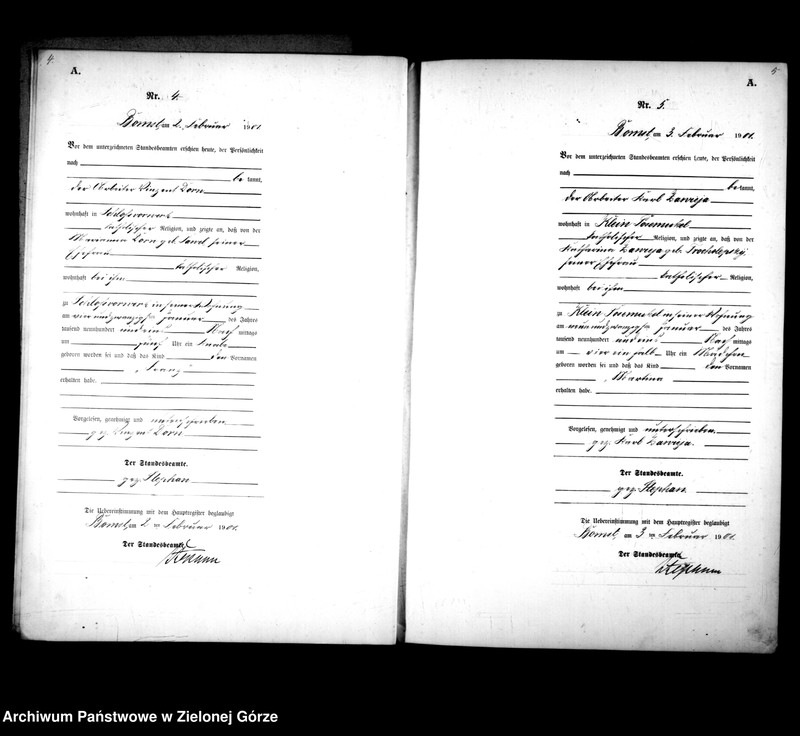 4.
A.
Nr. 4.
Bomst, am 2. Februar 1901.
Vor dem unterzeichneten Standesbeamten erschien heute, der Persönlichkeit
nach
bekannt,
der Arbeiter Vinzent Dorn
wohnhaft in
katholischer Religion, und zeigte an, daß von der
Marianna Dorn geb. seiner
Ehefrau
katholischer Religion,
wohnhaft bei ihm
zu in seiner Wohnung
am neunundzwanzigsten Januar des Jahres
tausend neunhundert und eins Nachmittags
um fünf Uhr ein Knabe
geboren worden sei und daß das Kind den Vornamen
"Franz"
erhalten habe.
Vorgelesen, genehmigt und unterschrieben
gez. Vinzent Dorn
Der Standesbeamte.
gez. Stephan
Die Uebereinstimmung mit dem Hauptregister beglaubigt
Bomst, am 2. ten Februar 1901.
Der Standesbeamte
Stephan
5
A.
Nr. 5.
Bomst, am 3. Februar 1901.
Vor dem unterzeichneten Standesbeamten erschien heute, der Persönlichkeit
nach
bekannt,
der Arbeiter Karl
wohnhaft in Klein
katholischer Religion, und zeigte an, daß von der
Katharina geb.
seiner Ehefrau
katholischer Religion,
wohnhaft bei ihm
zu Klein in seiner Wohnung
am neunundzwanzigsten Januar des Jahres
tausend neunhundert und eins Nachmittags
um vier ein halb Uhr ein Mädchen
geboren worden sei und daß das Kind den Vornamen
"Martha"
erhalten habe.
Vorgelesen, genehmigt und unterschrieben.
gez. Karl
Der Standesbeamte.
gez. Stephan.
Die Uebereinstimmung mit dem Hauptregister beglaubigt
Bomst, am 3 ten Februar 1901.
Der Standesbeamte
Stephan
Archiwum Państwowe w Zielonej Górze